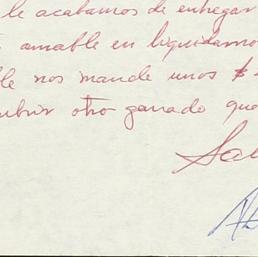 le acabamos de entregar
amable en liquidarno
ble nos mande unos $
ubrir otro ganado que
Sal